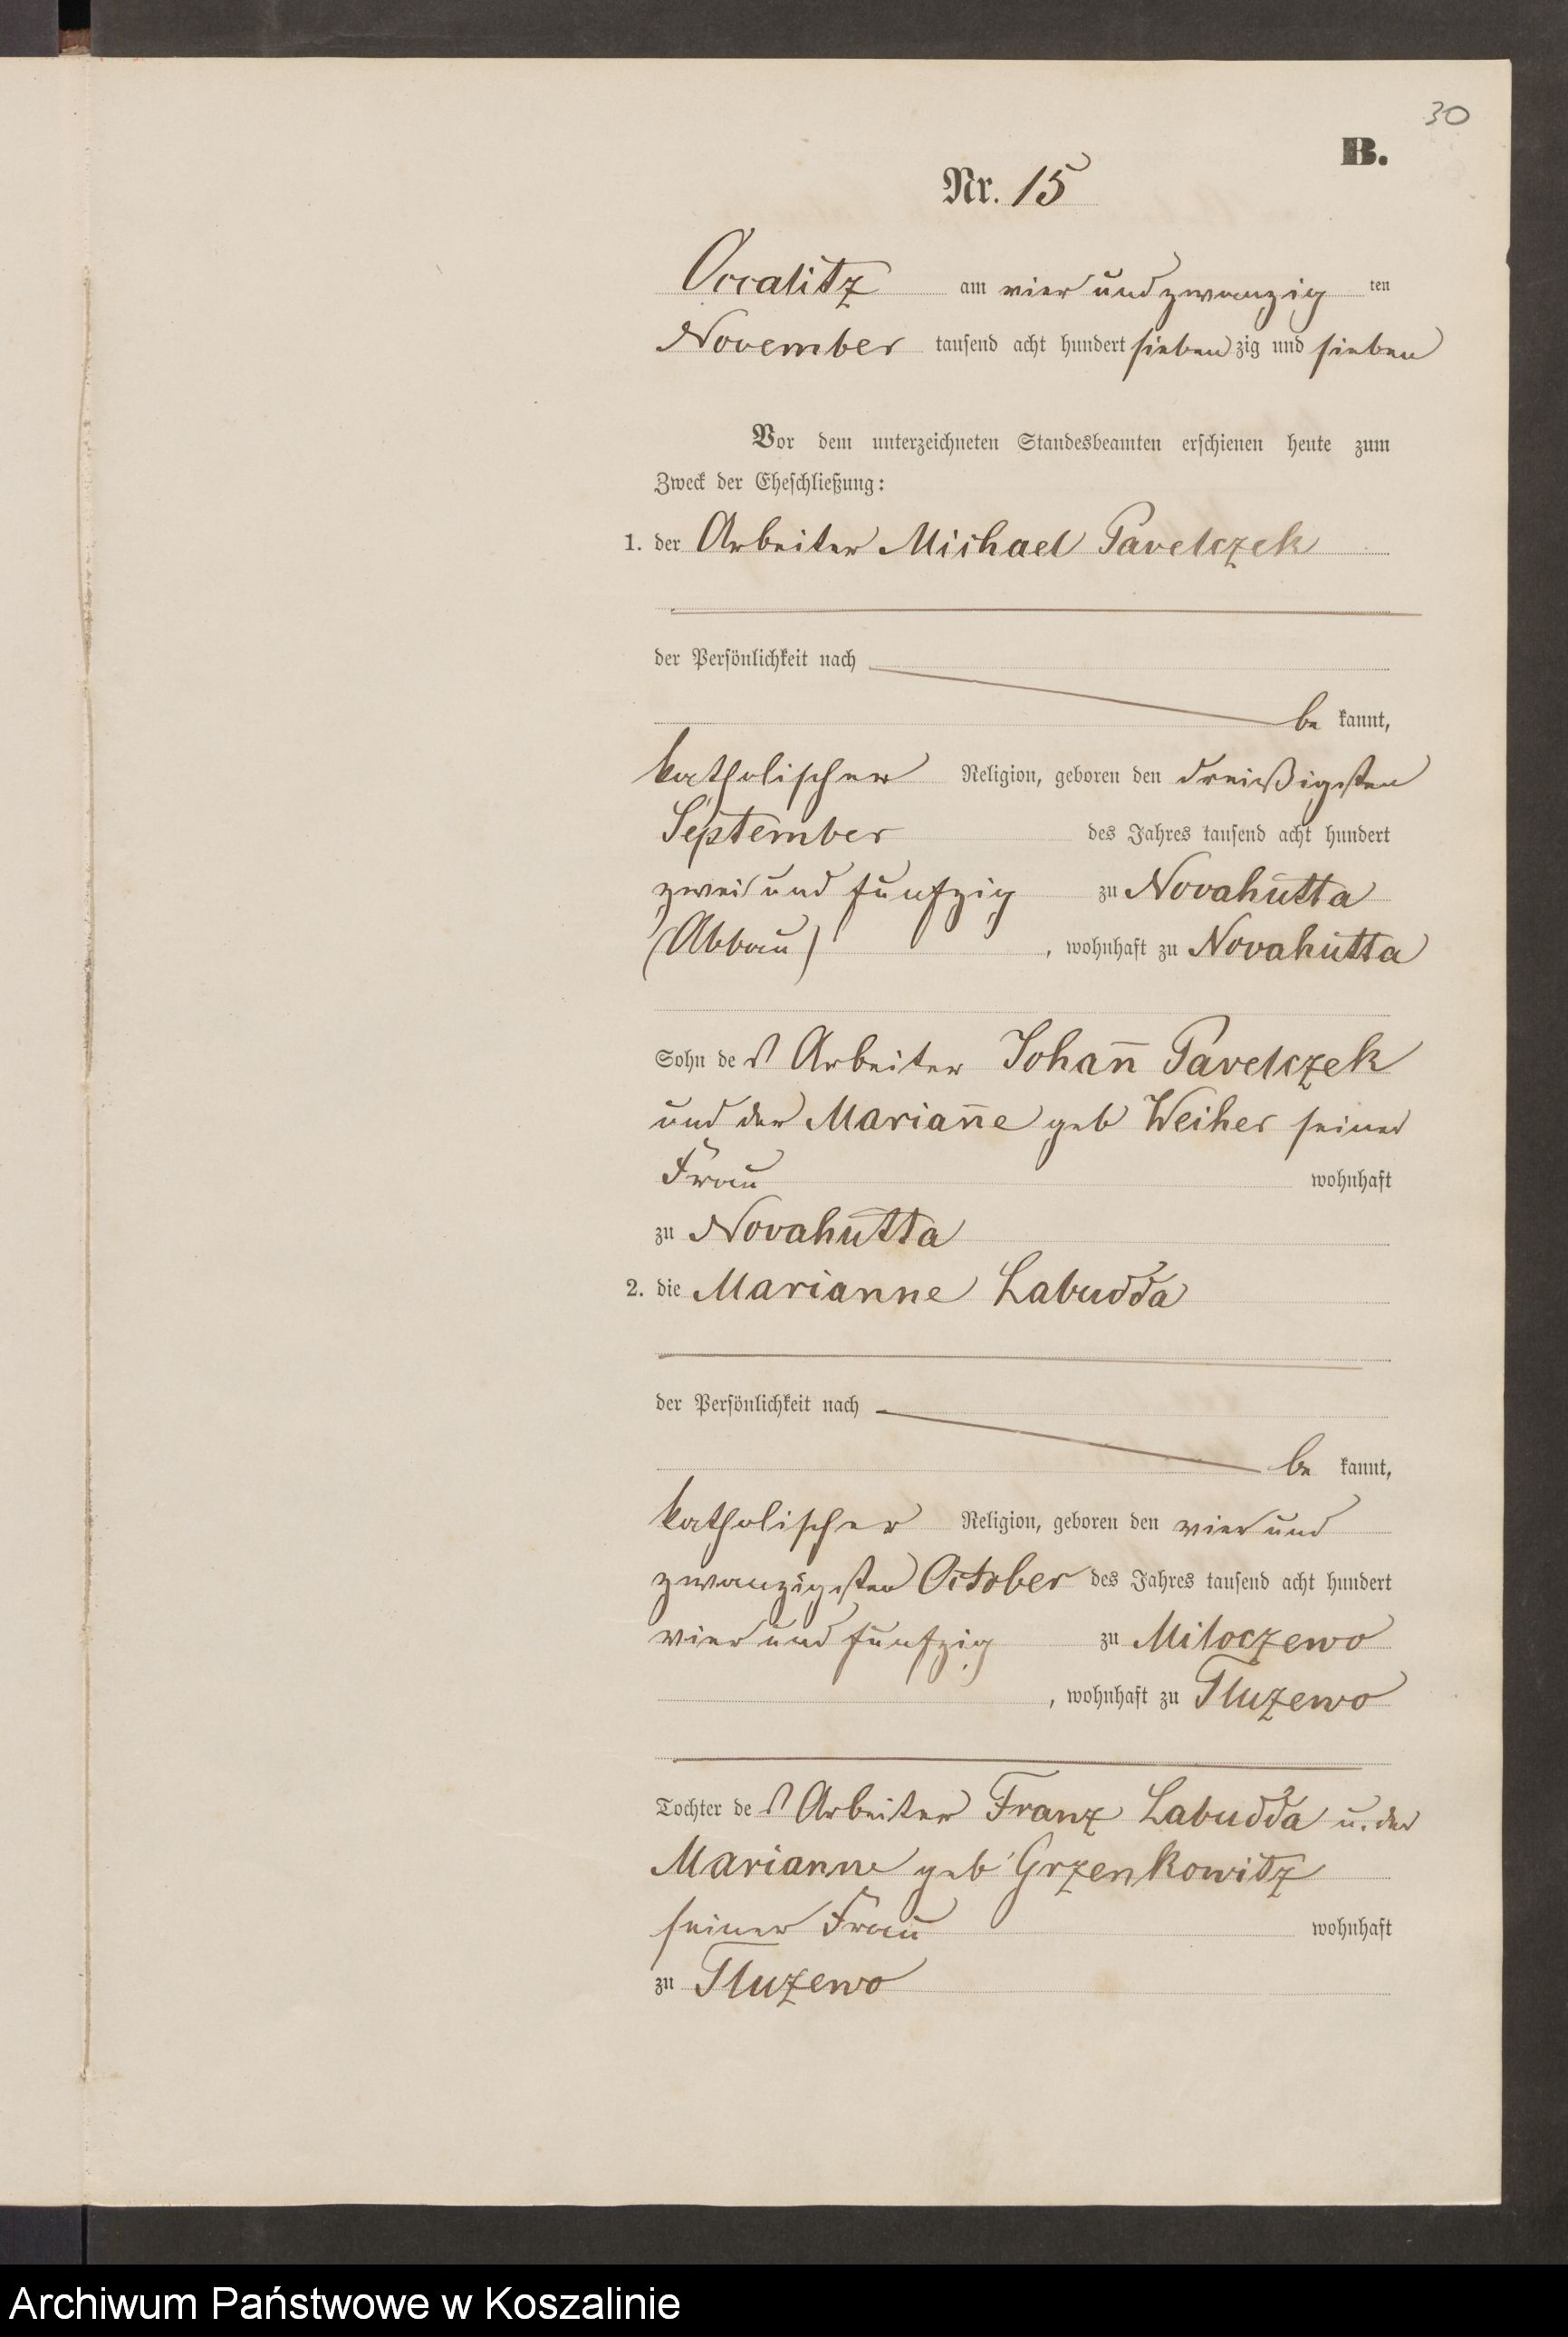 30
B.
Nr. 15
Occalitz am vier und zwanzig ten
November tausend acht hundert sieben zig und sieben
Vor dem unterzeichneten Standesbeamten erschienen heute zum
Zweck der Eheschließung:
1. der Arbeiter Michael Pavelczek
der Persönlichkeit nach
be kannt,
katholischer Religion, geboren den dreißigsten
September des Jahres tausend acht hundert
zwei und fünfzig zu Novahutta
(Abbau) , wohnhaft zu Novahutta
Sohn des Arbeiter Johan̄ Pavelczek
und der Marian̄e geb Weiher seiner
Frau wohnhaft
zu Novahutta
2. die Marianne Labudda
der Persönlichkeit nach
be kannt,
katholischer Religion, geboren den vier und
zwanzigsten October des Jahres tausend acht hundert
vier und fünfzig zu Miloczewo
, wohnhaft zu Tluzewo
Tochter des Arbeiter Franz Labudda u. der
Marianne geb Grzenkowitz
seiner Frau wohnhaft
zu Tluzewo
Archiwum Państwowe w Koszalinie